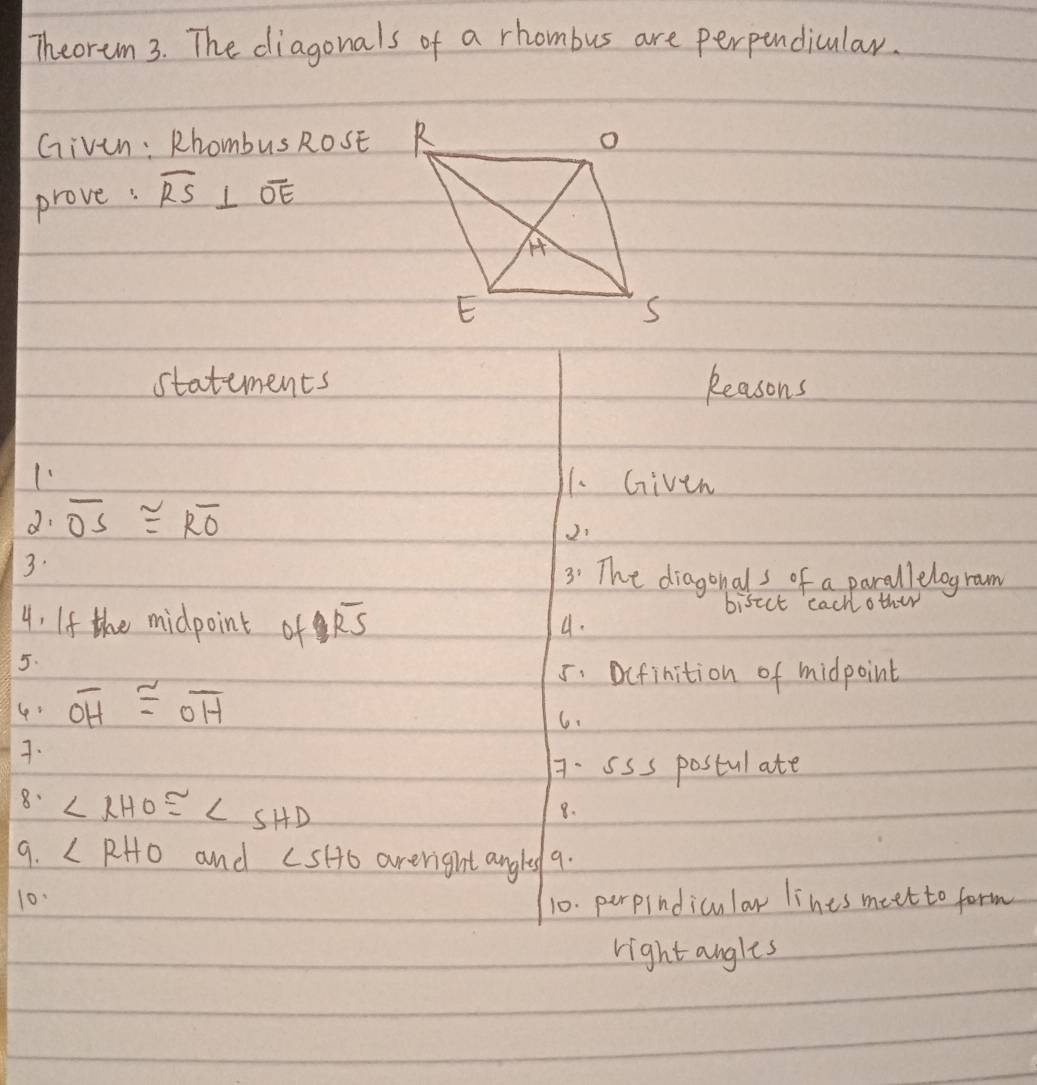 Theorem 3. The diagonals of a rhombus are perpendicular.
Given: Rhombus ROSE
prove: R̅S̅ ⊥ O̅E̅
R
O
H
E
S
Statements
Reasons
1.
1. Given
2. O̅S̅ ≅ R̅O̅
2.
3.
3. The diagonals of a parallelogram
bisect each other
4. If the midpoint of R̅S̅
4.
5.
5. Definition of midpoint
6. O̅H̅ ≅ O̅H̅
6.
7.
7. SSS postulate
8. < RHO ≅ < SHD
8.
9. < RHO and <SHO are right angles
9.
10.
10. perpindicular lines meet to form
right angles